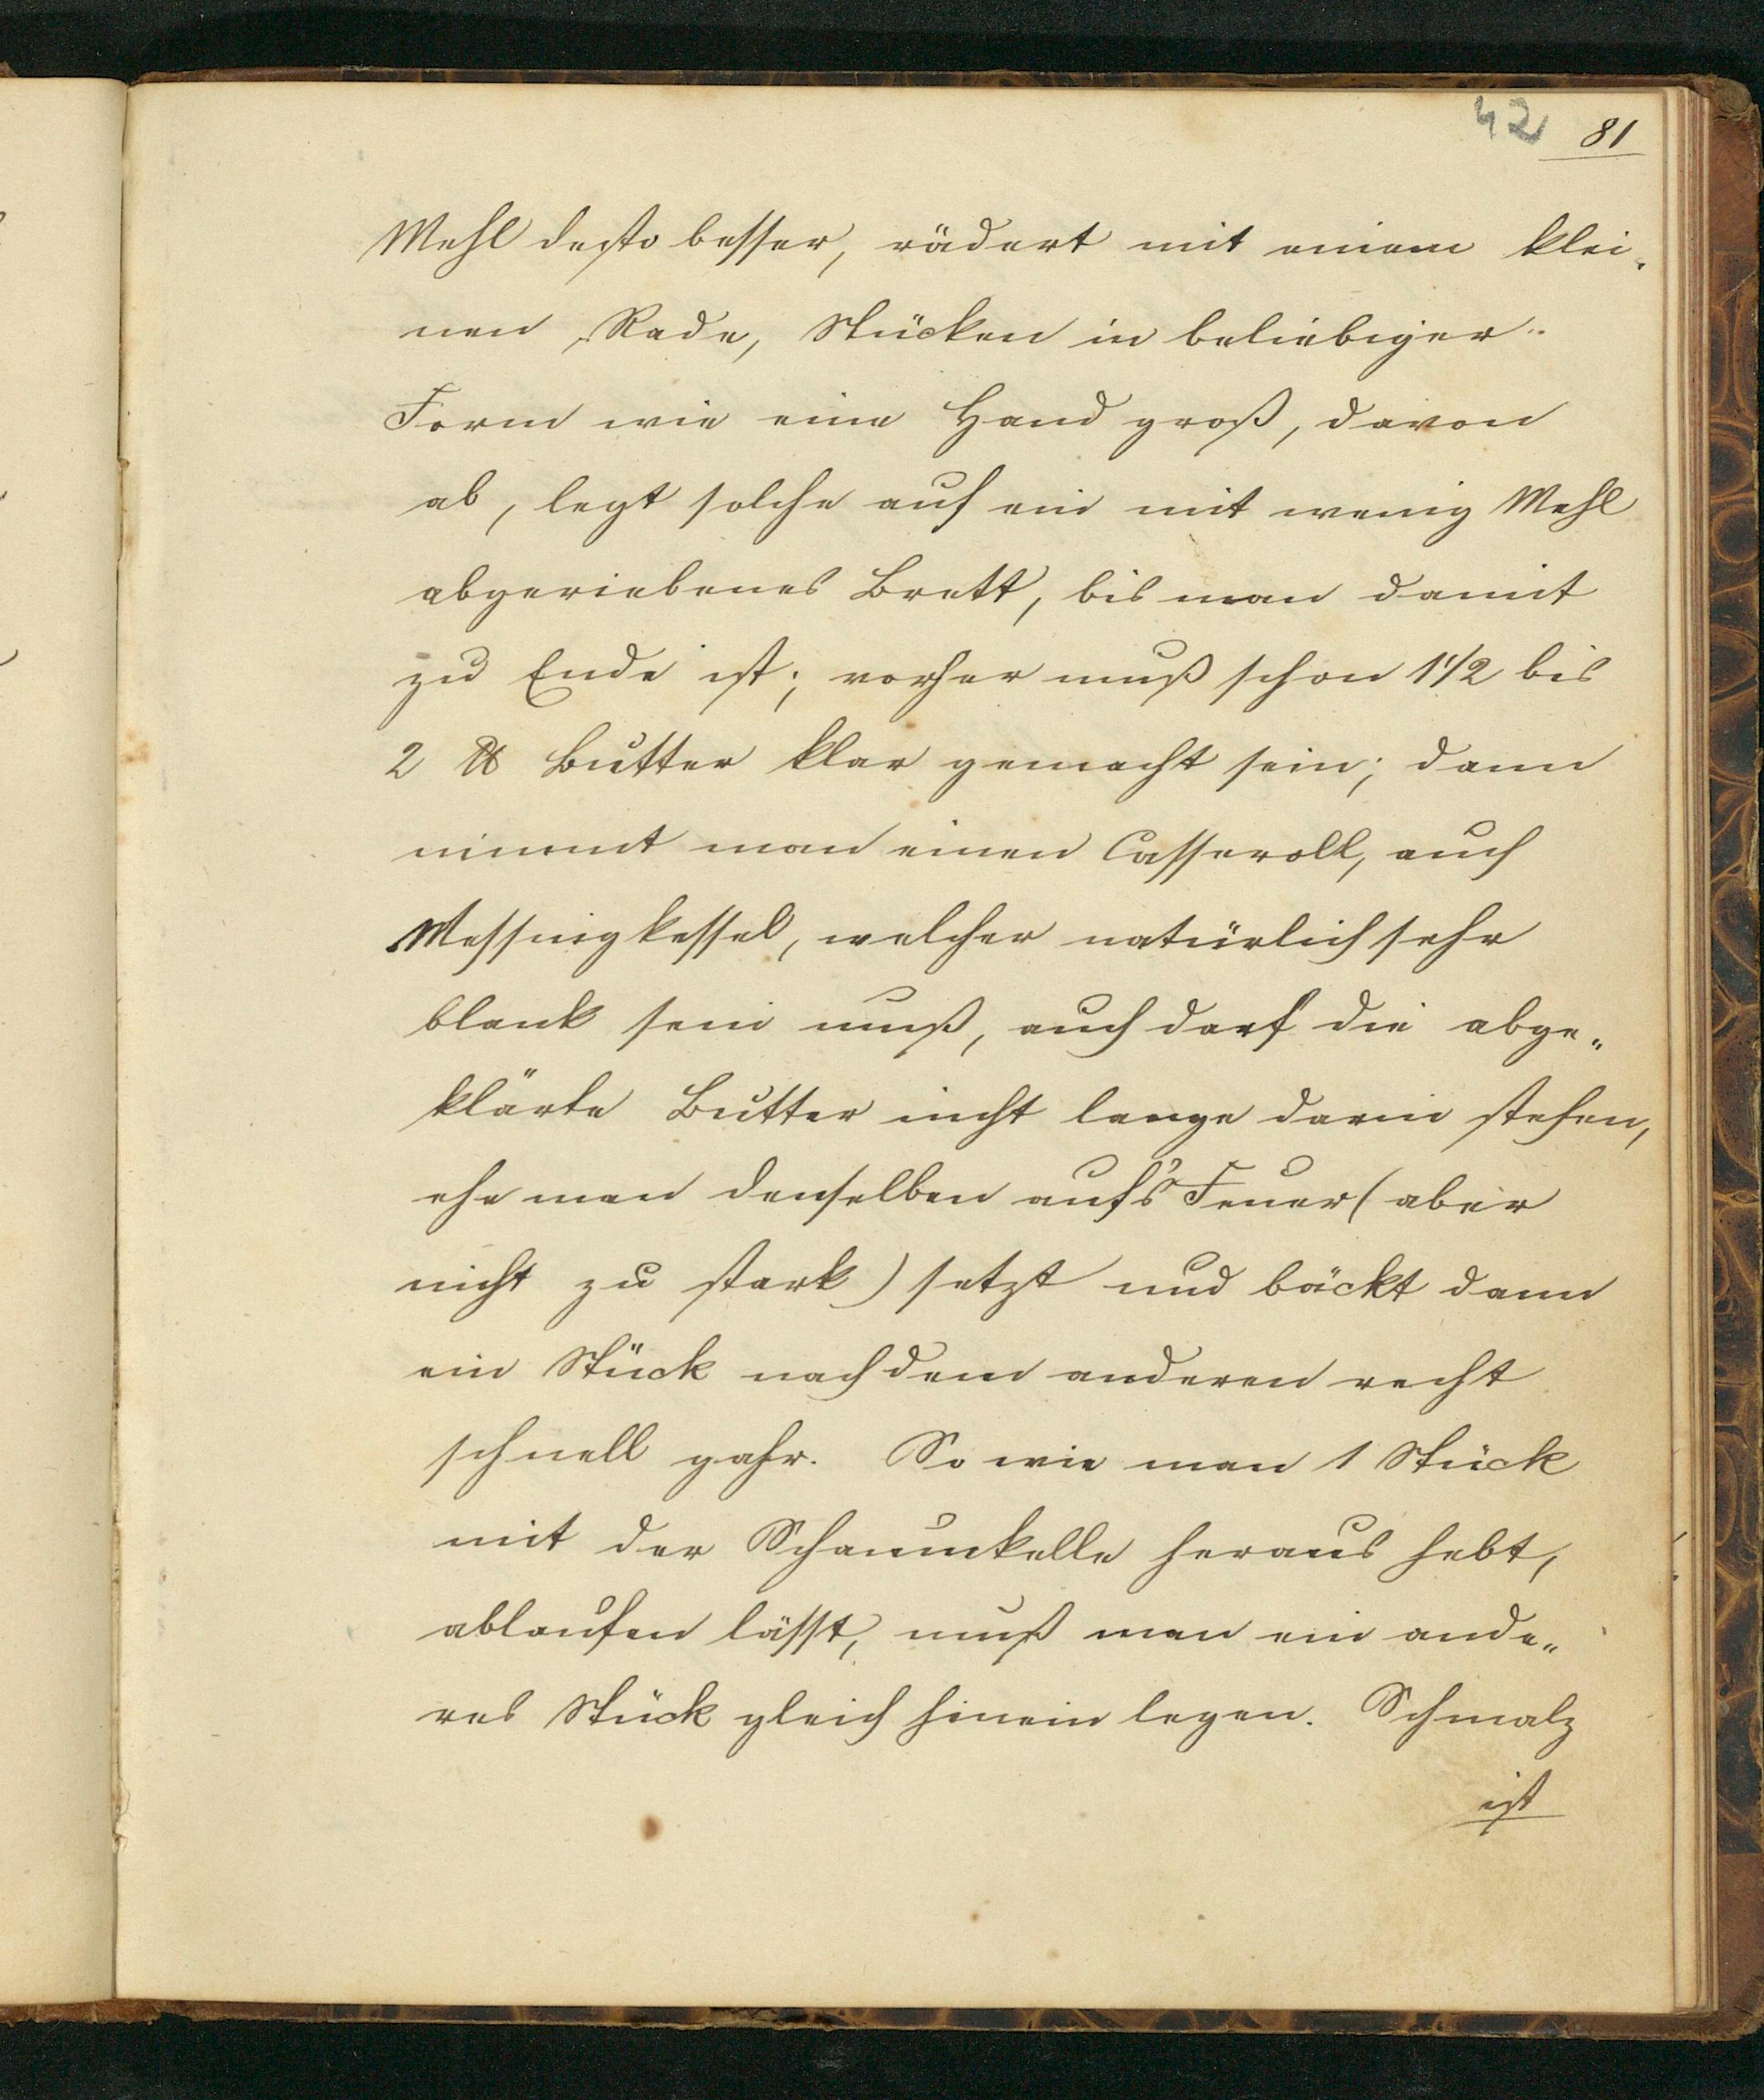 42 81
Mehl desto besser, rädert mit einem klei-
nen Rade, Stücken in beliebiger
Form wie eine Hand groß, davon
ab, legt solche auf ein mit wenig Mehl
abgeriebenes Brett, bis man damit
zu Ende ist; vorher muß schon 1 1/2 bis
2 ℔ Butter klar gemacht sein; dann
nimmt man einen Casseroll, auch
Messingkessel, welcher natürlich sehr
blank sein muß, auch darf die abge„
klärte Butter nicht lange darin stehen,
ehe man denselben auf's Feuer (aber
nicht zu stark) setzt und bäckt dann
ein Stück nach dem anderen recht
schnell gahr. So wie man 1 Stück
mit der Schaumkelle heraus hebt,
ablaufen lässt, muß man ein ande„
res Stück gleich hinein legen. Schmalz
ist